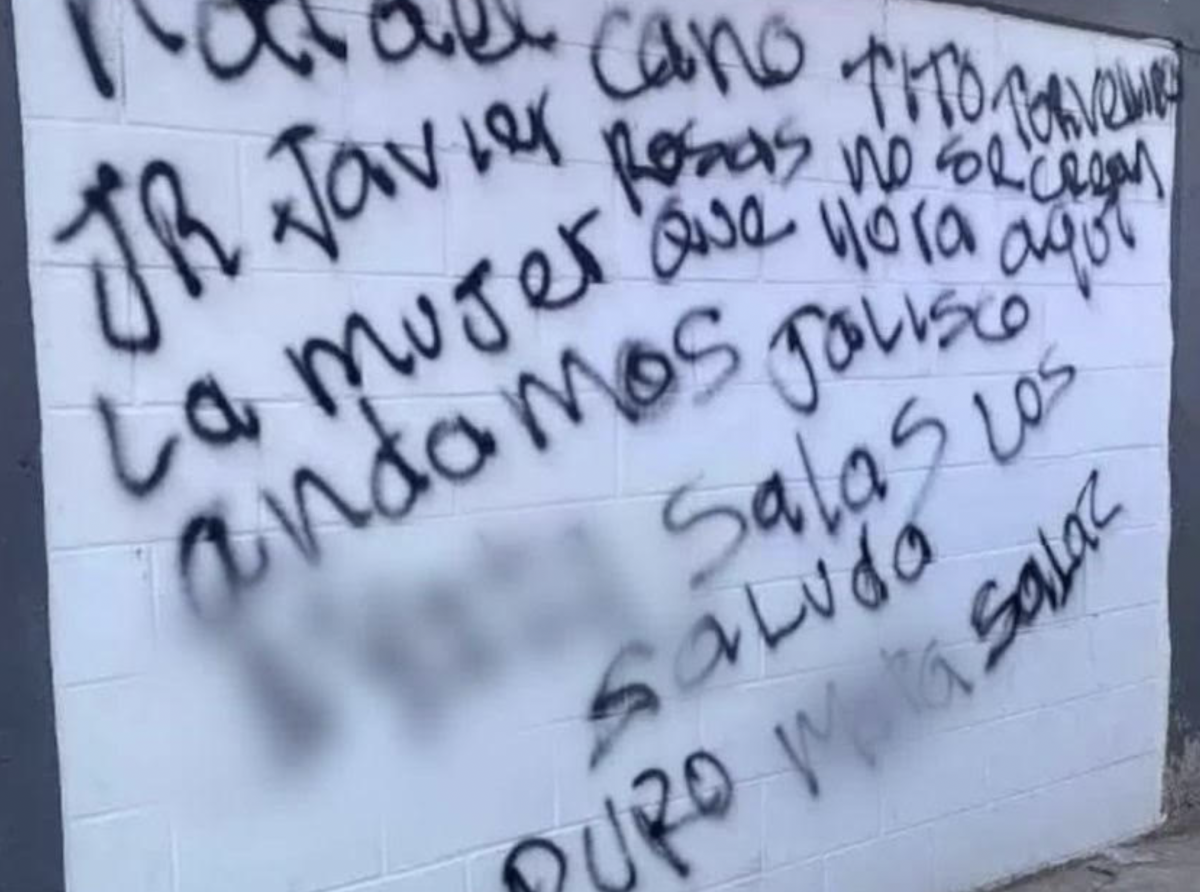 Rafael cano TITO TORVELLINO
JR Javier Rosas no se crean
La mujer que llora aqui
andamos Jalisco
salas Los
saluda
PURO salas